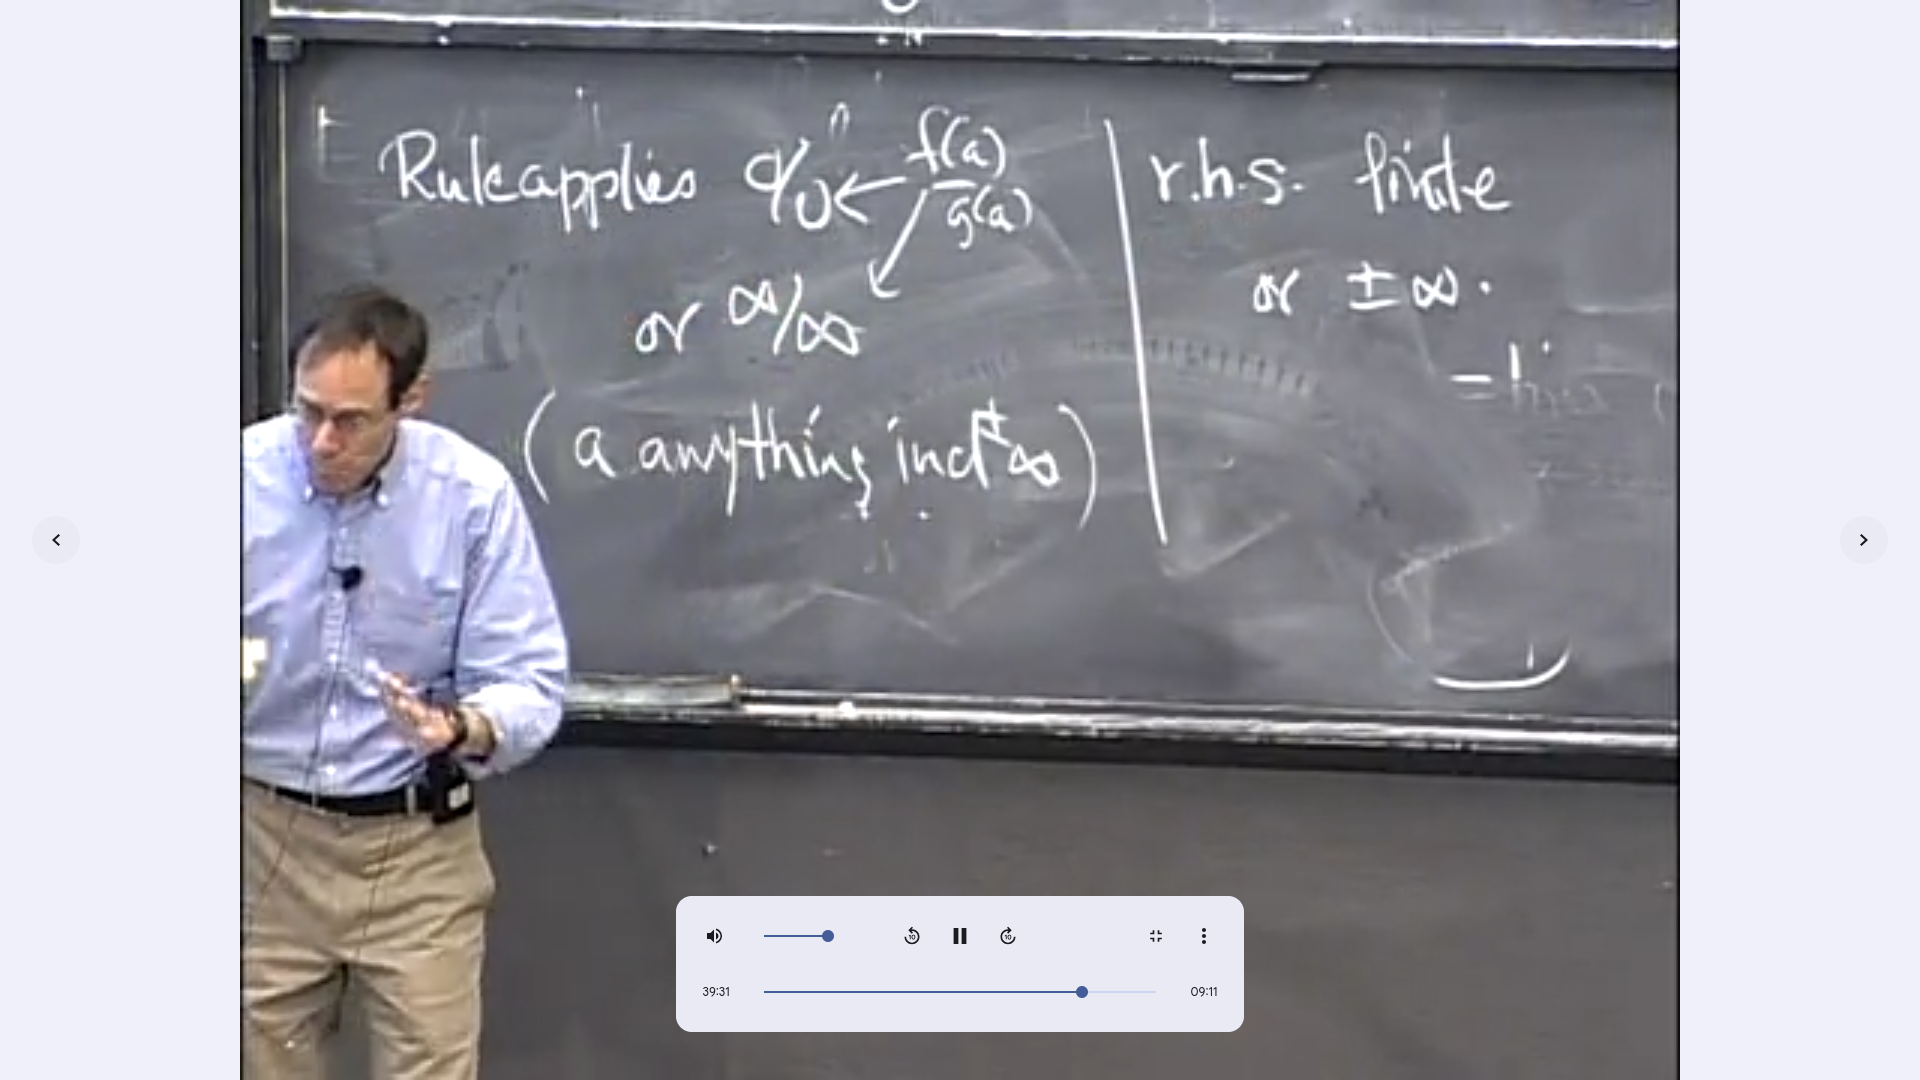 Rule applies 0/0 ← f(a)/g(a)
or ∞/∞
(a anything incl ±∞)
r.h.s. finite
or ± ∞.
39:31
09:11